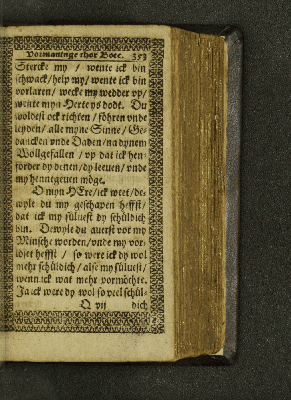 Vormaninge thor Bote. 353
Stercke my / wente ick bin
schwack / help my / wente ick bin
vorlaren / wecke my wedder vp /
wente myn Herte ys dodt. Du
woldest ock richten / föhren vnde
leyden / alle myne Sinne / Ge-
dancken vnde Daden / na dynem
Wollgefallen / vp dat ick hen-
förder dy denen / dy leeuen / vnde
my hennegeuen möge.
O myn HEre / ick weet / de-
wyle du my geschapen heffst /
dat ick my süluest dy schüldich
bin. Dewyle du auerst vor my
Minsche worden / vnde my vor-
löset heffst / so were ick dy wol
mehr schüldich / alse my süluest /
wenn ick wat mehr vormöchte.
Ja ick were dy wol so veel schül-
Q vij dich